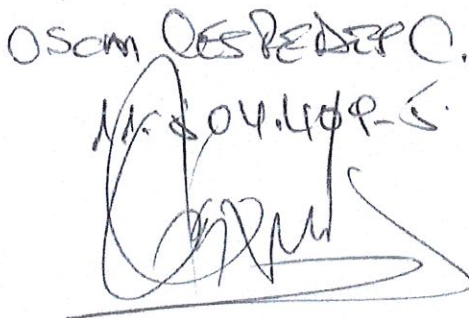 OSCAR CESPEDES C.
11.804.409-5.